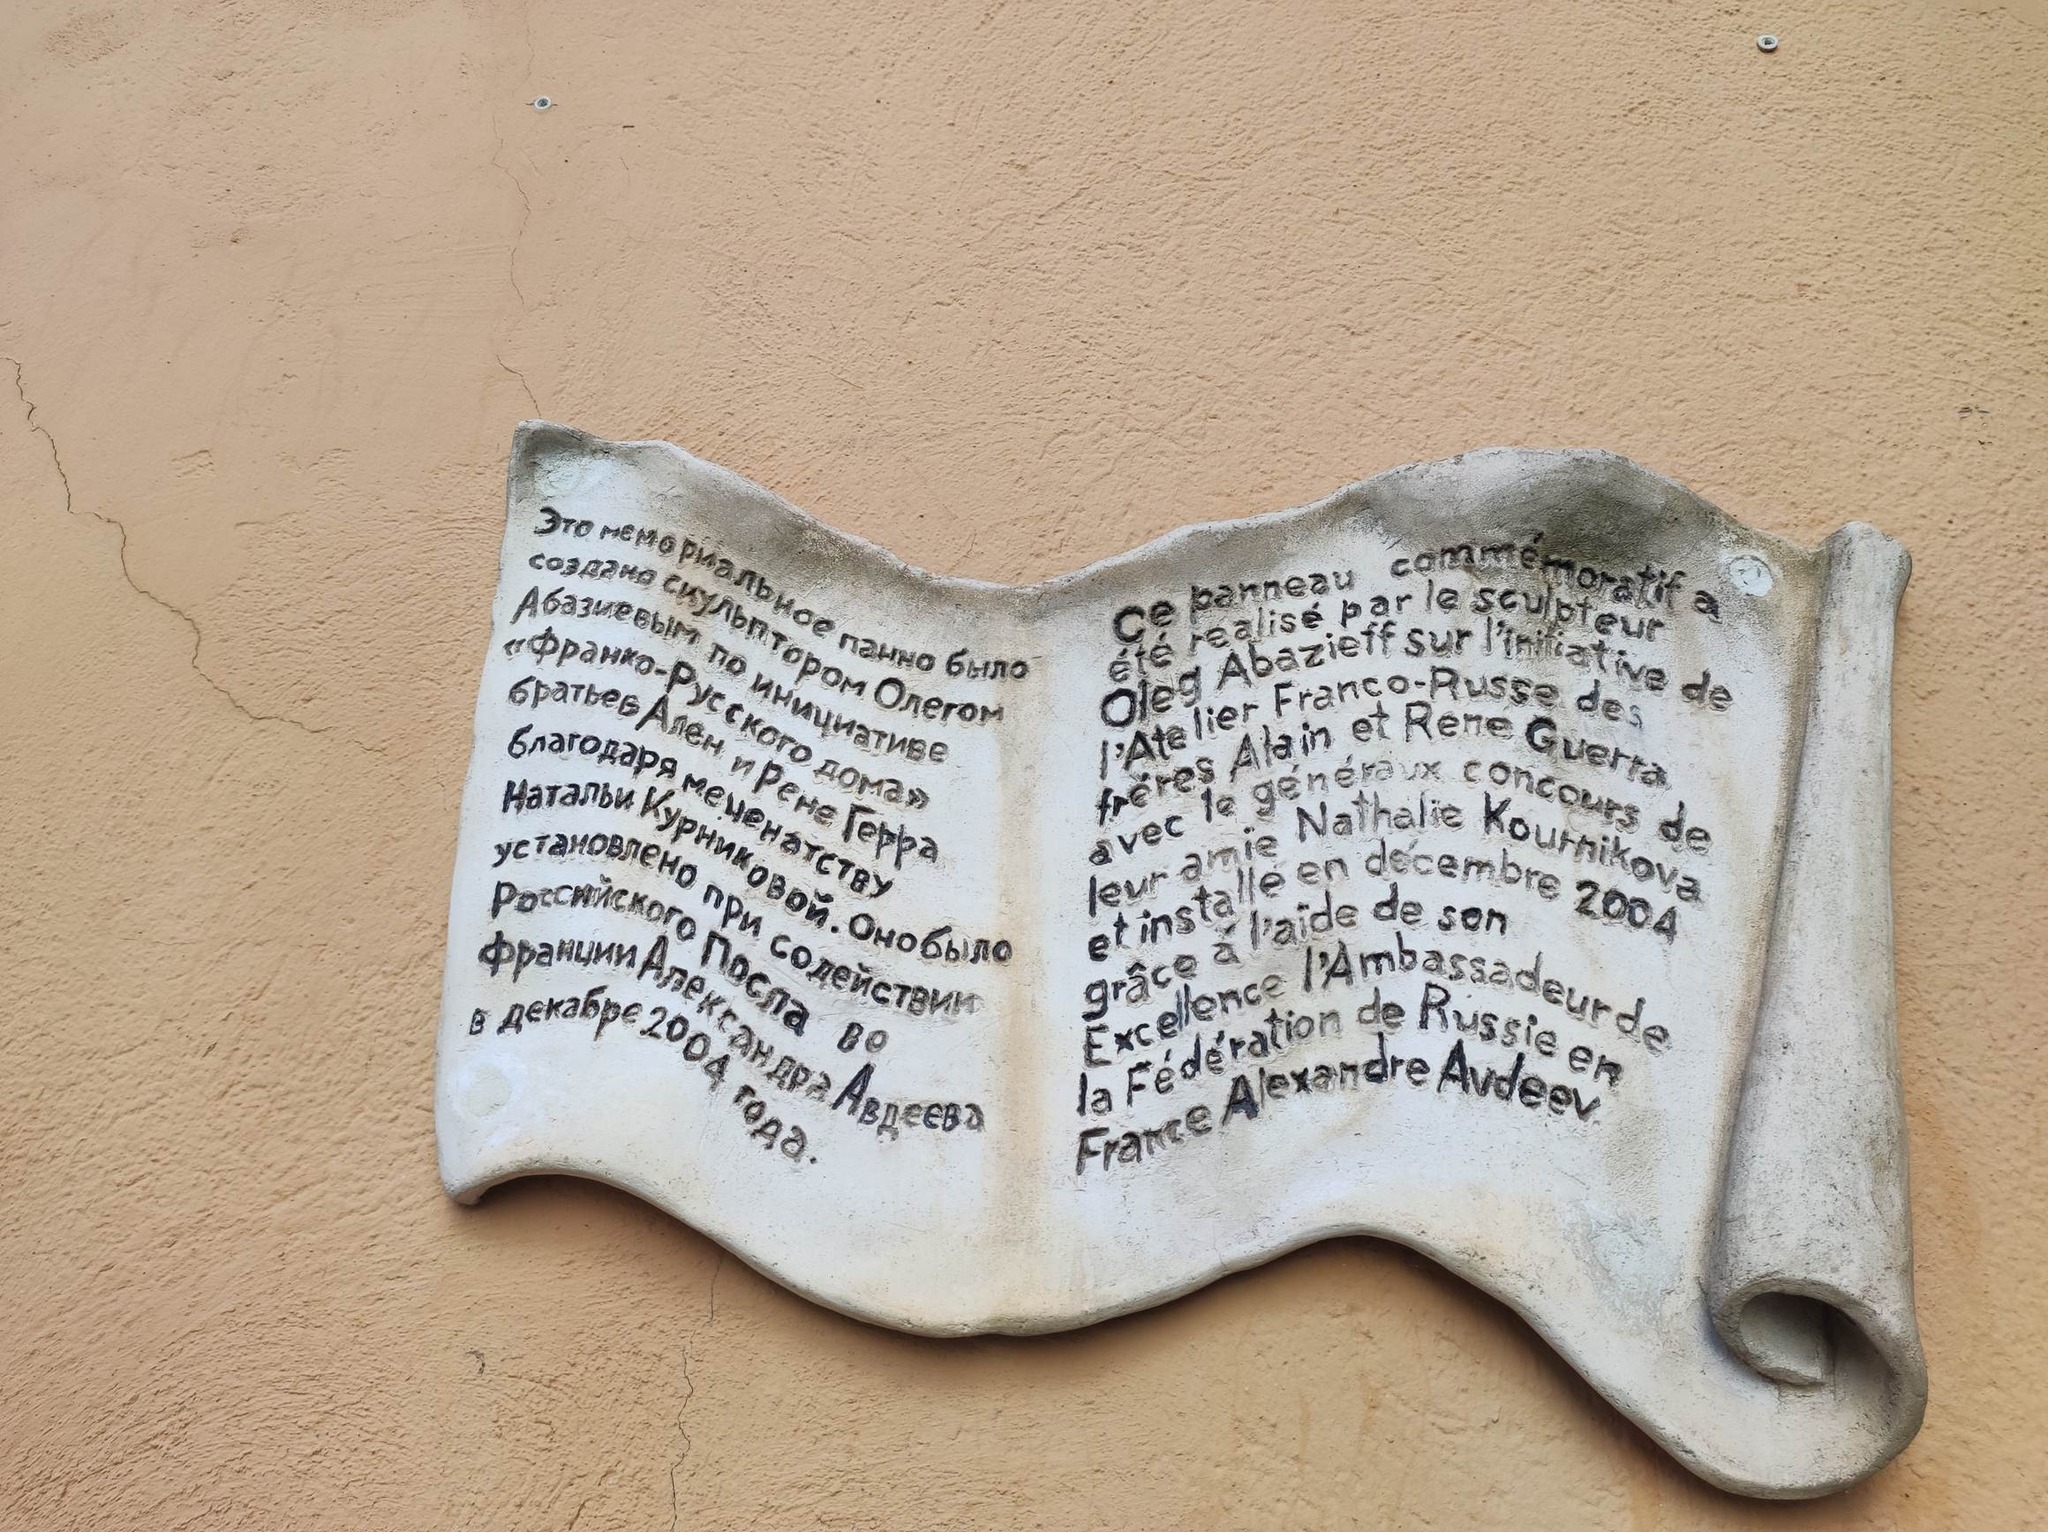 Это мемориальное панно было
создано скульптором Олегом
Абазиевым по инициативе
«Франко-Русского дома»
братьев Ален и Рене Герра
благодаря меценатству
Натальи Курниковой. Оно было
установлено при содействии
Российского Посла во
Франции Александра Авдеева
в декабре 2004 года.
Ce panneau commémoratif a
été réalisé par le sculpteur
Oleg Abazieff sur l'initiative de
l'Atelier Franco-Russe des
frères Alain et Rene Guerra
avec le généraux concours de
leur amie Nathalie Kournikova
et installé en décembre 2004
grâce à l'aide de son
Excellence l'Ambassadeur de
la Fédération de Russie en
France Alexandre Avdeev.